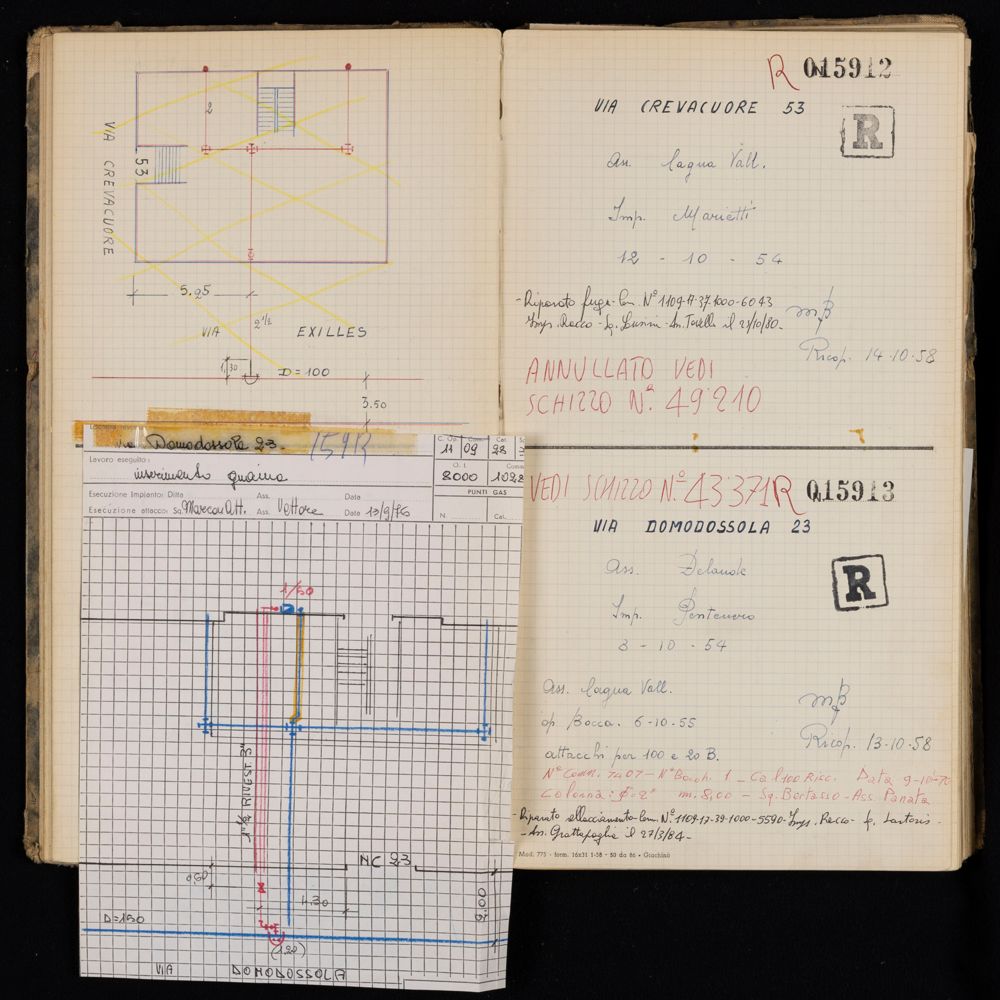 2
VIA CREVACUORE
53
5.25
2 1/2
VIA EXILLES
1,30
D=100
3.50
Via Domodossola 23.
159R
Lavoro eseguito:
inserimento guaina
C. Op. Com. Cat.
11 09 28
O. I.
8000 1028
PUNTI GAS
Esecuzione Impianto: Ditta Ass. Data
Esecuzione attacco: Sq. Marcon Att. Ass. Vettore Date 13/9/76
N. Cat.
1/50
RIVEST.
N.C 23
0,60
1.30
5.00
D=150
VIA DOMODOSSOLA
R 015912
VIA CREVACUORE 53
R
Ass. Lagua Vall.
Imp. Marietti
12 - 10 - 54
- Riparato fuga - Com. N° 1109-A-37-1000-6043
Imp. Rocco - Sq. - An. Torelli il 21/10/80.
Ricop. 14-10-58
ANNULLATO VEDI
SCHIZZO N°. 49210
VEDI SCHIZZO N° 43371R 015913
VIA DOMODOSSOLA 23
R
Ass. Delaude
Imp. Pentenero
3 - 10 - 54
Ass. Lagua Vall.
op. Bocca. 6-10-55
Ricop. 13-10-58
attacchi per 100 e 20 B.
N° Comm. 7407 - N° Bocch. 1 - Cal 100 Risc. Data 9-10-70
Colonna: φ=2" m. 8,00 - Sq. Bertasso - Ass. Panata
- Riparato allacciamento - Com. N° 1109-17-39-1000-5590 - Imp. Rocco
- An. Grattapaglia il 27/3/84 -
Mod. 775 - form. 16x31 1-58 - 50 da 86 • Giachino